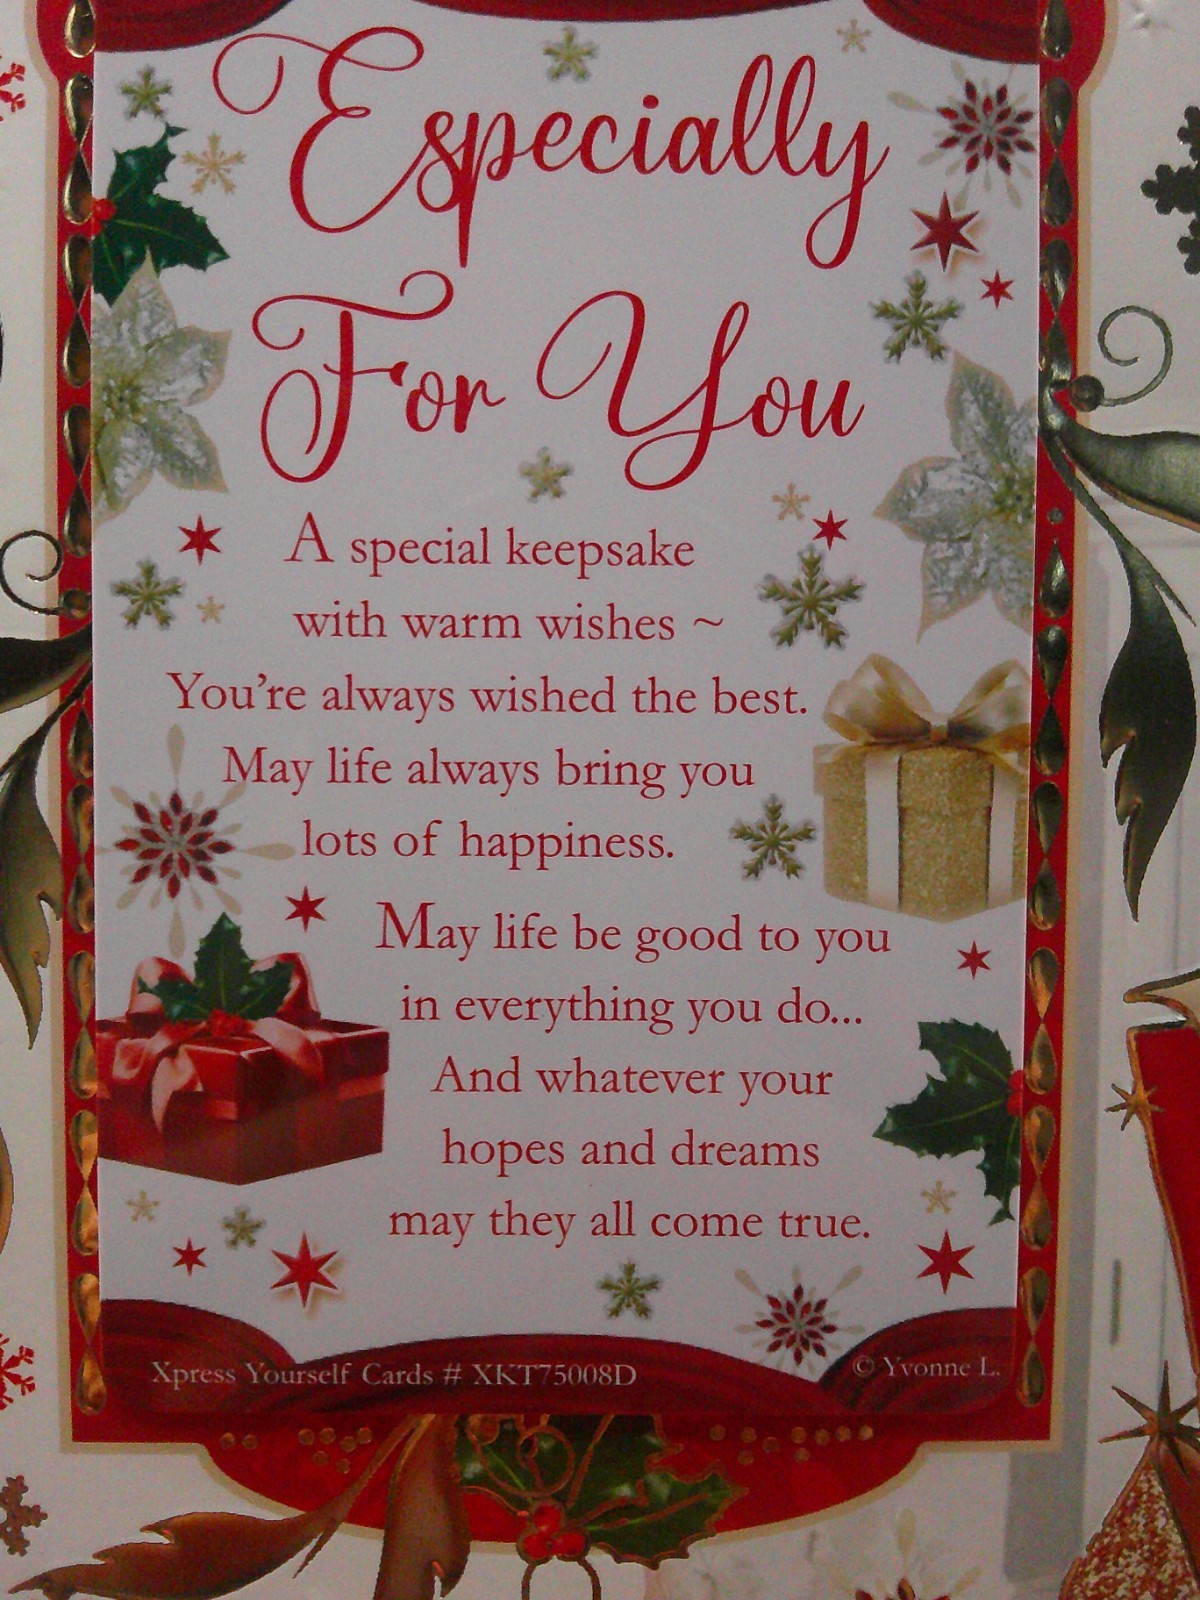 Especially
For You
A special keepsake
with warm wishes ~
You're always wished the best.
May life always bring you
lots of happiness.
May life be good to you
in everything you do...
And whatever your
hopes and dreams
may they all come true.
Xpress Yourself Cards # XKT75008D
© Yvonne L.